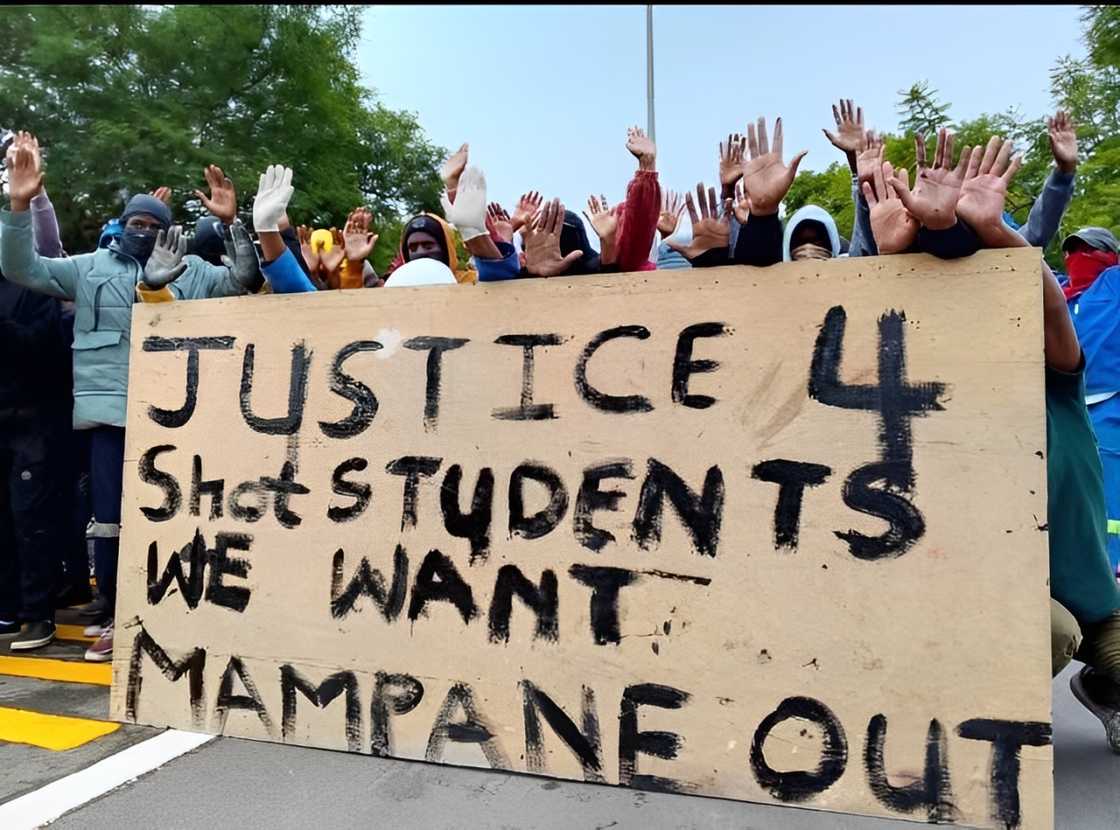 JUSTICE 4
Shot STUDENTS
WE WANT
MAMPANE OUT